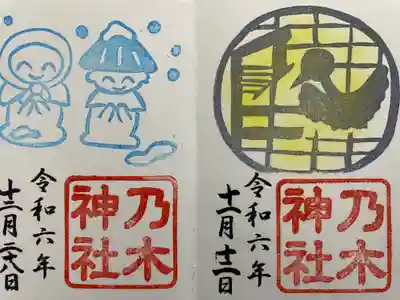 令和六年
十二月二十八日
乃木
神社
令和六年
十一月十二日
乃木
神社